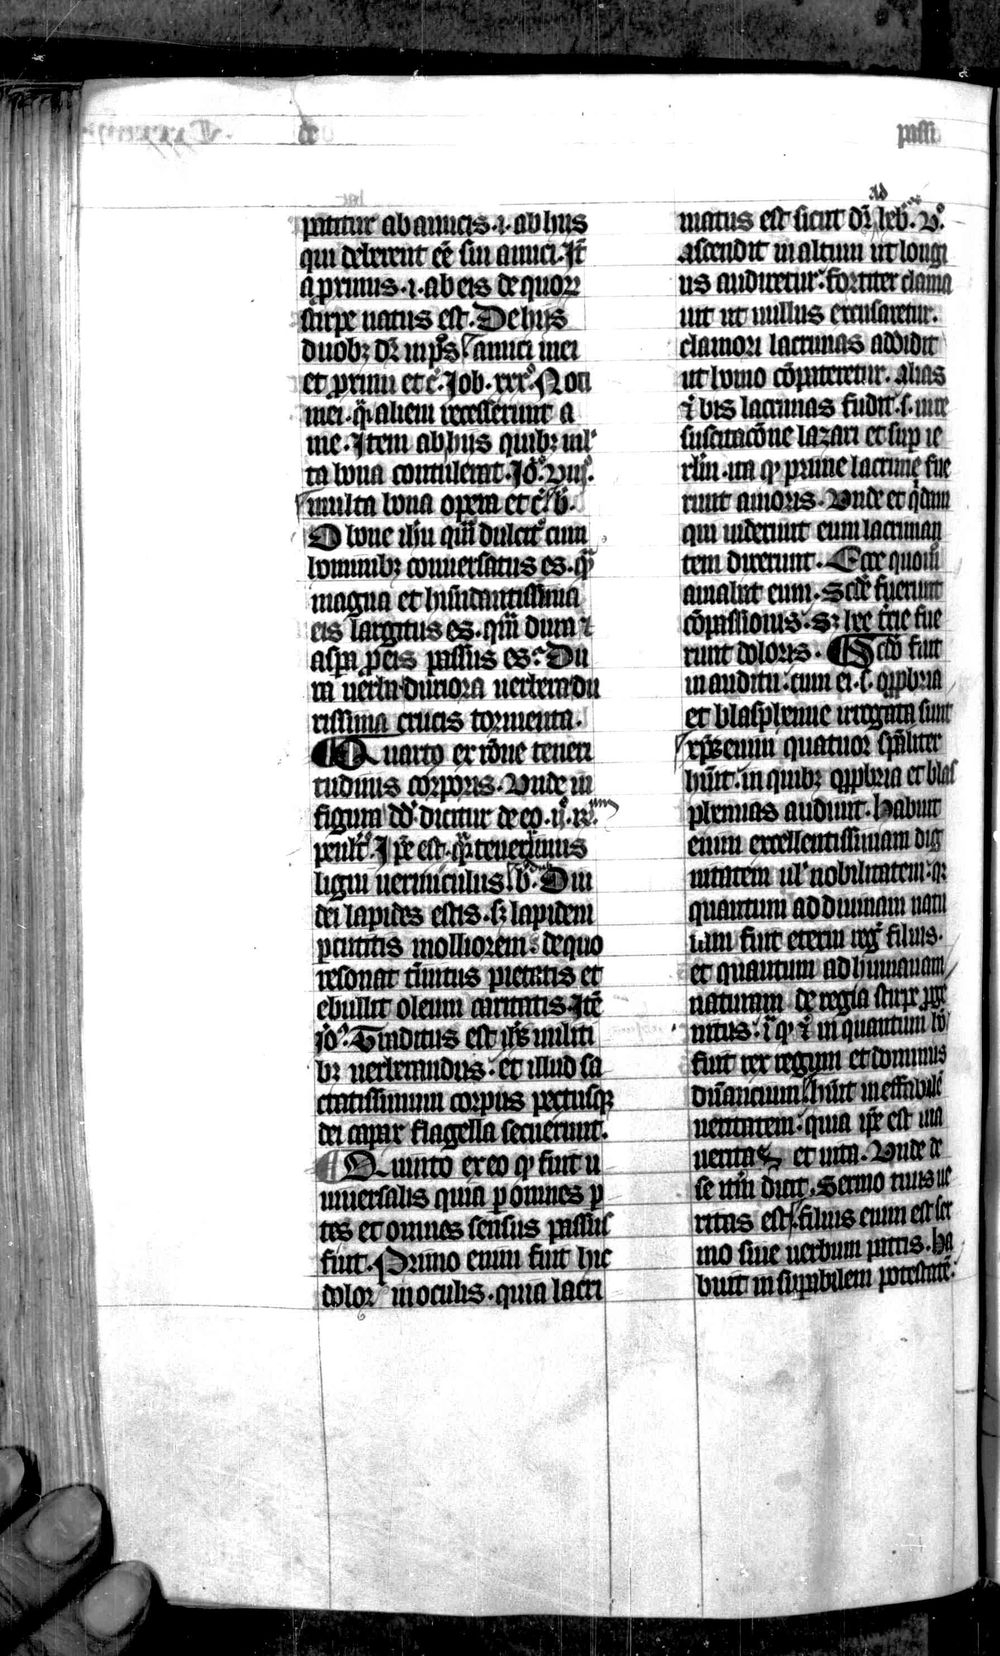 passi
patitur ab amicis .i. ab hiis
qui deberent eē sui amici. Jt̄
a p̱ximis .i. ab eis de quoꝝ
stirpe natus est. De hiis
duobꝫ dr̄ in ps̄ amici mei
et p̱ximi et c̄. Job. xixº. Noti
mei. q̄i alieni recesserunt a
me. Item ab hiis quibꝫ ml̾
ta bona contulerat. Jō.
multa bona opera et c̄.
O bone ihū qm̄ dulcit̾ cum
hominibꝫ conuersatus es. qm̄
magna et hūdantissima
eis largitus es. qm̄ dura ⁊
aspa p̱ eis passus es. Du
ra uerba. duriora uerbera. du
rissima crucis tormenta.
Quarto ex rōne teneri
tudinis corporis. Vnde in
figura dd̄ dicitur de eo. ij. rº.
penltº. Jpē est. qi tenerrimus
ligni uermiculus. b̾. Oui
dei lapides estis. sꝫ lapidem
pcutitis molliorem. de quo
resonat tinitus pietatis et
ebullit oleum caritatis. Jtē
jō. Traditus est ihs̄ militi
bꝫ uerberandus. et illud sa
cratissimum corpus pectusqꝫ
dei capax flagella secuerunt.
Quinto ex eo qꝫ fuit u
niuersalis quia p̱ omnes p̱
tes et omnes sensus passus
fuit. Primo enim fuit hic
dolor in oculis. quia lacri
ad
matus est sicut dr̄ heb. vº.
ascendit in altum ut longi
us audiretur. fortiter clama
uit ut nullus excusaretur.
clamori lacrimas addidit
ut homo cōpateretur. alias
⁊ bis lacrimas fudit. s. in re
suscitacōne lazari et sup ie
rlm̄. ita qꝫ prime lacrime fue
runt amoris. Vnde et q̄dam
qui uiderunt eum lacriman
tem dixerunt. Ecce quomō
amabat eum. Scd̄e fuerunt
cōpassionis. Sꝫ hee t̄cie fue
runt doloris. Scd̄o fuit
in auditu. cum ei. s. opp̱bria
et blasphemie irrogata sunt
xp̄s enim quatuor sp̄aliter
hūit. in quibꝫ opp̱bria et blas
phemias audiuit. Habuit
enim excellentissimam dig
nitatem ul̾ nobilitatem. qꝫ
quantum ad diuinam natu
ram fuit eterni reg̾ filius.
et quantum ad humanam
naturam de regia stirpe p̱ge
nitus. in quantum hō
fuit rex regum et dominus
dn̄ancium. hūit ineffabilē
ueritatem. quia ip̄e est uia
ueritas et uita. Vnde de
se itm̄ dicit. Sermo tuus ue
ritas est. filius enim est ser
mo siue uerbum patris. Ha
buit insupabilem potestatē.